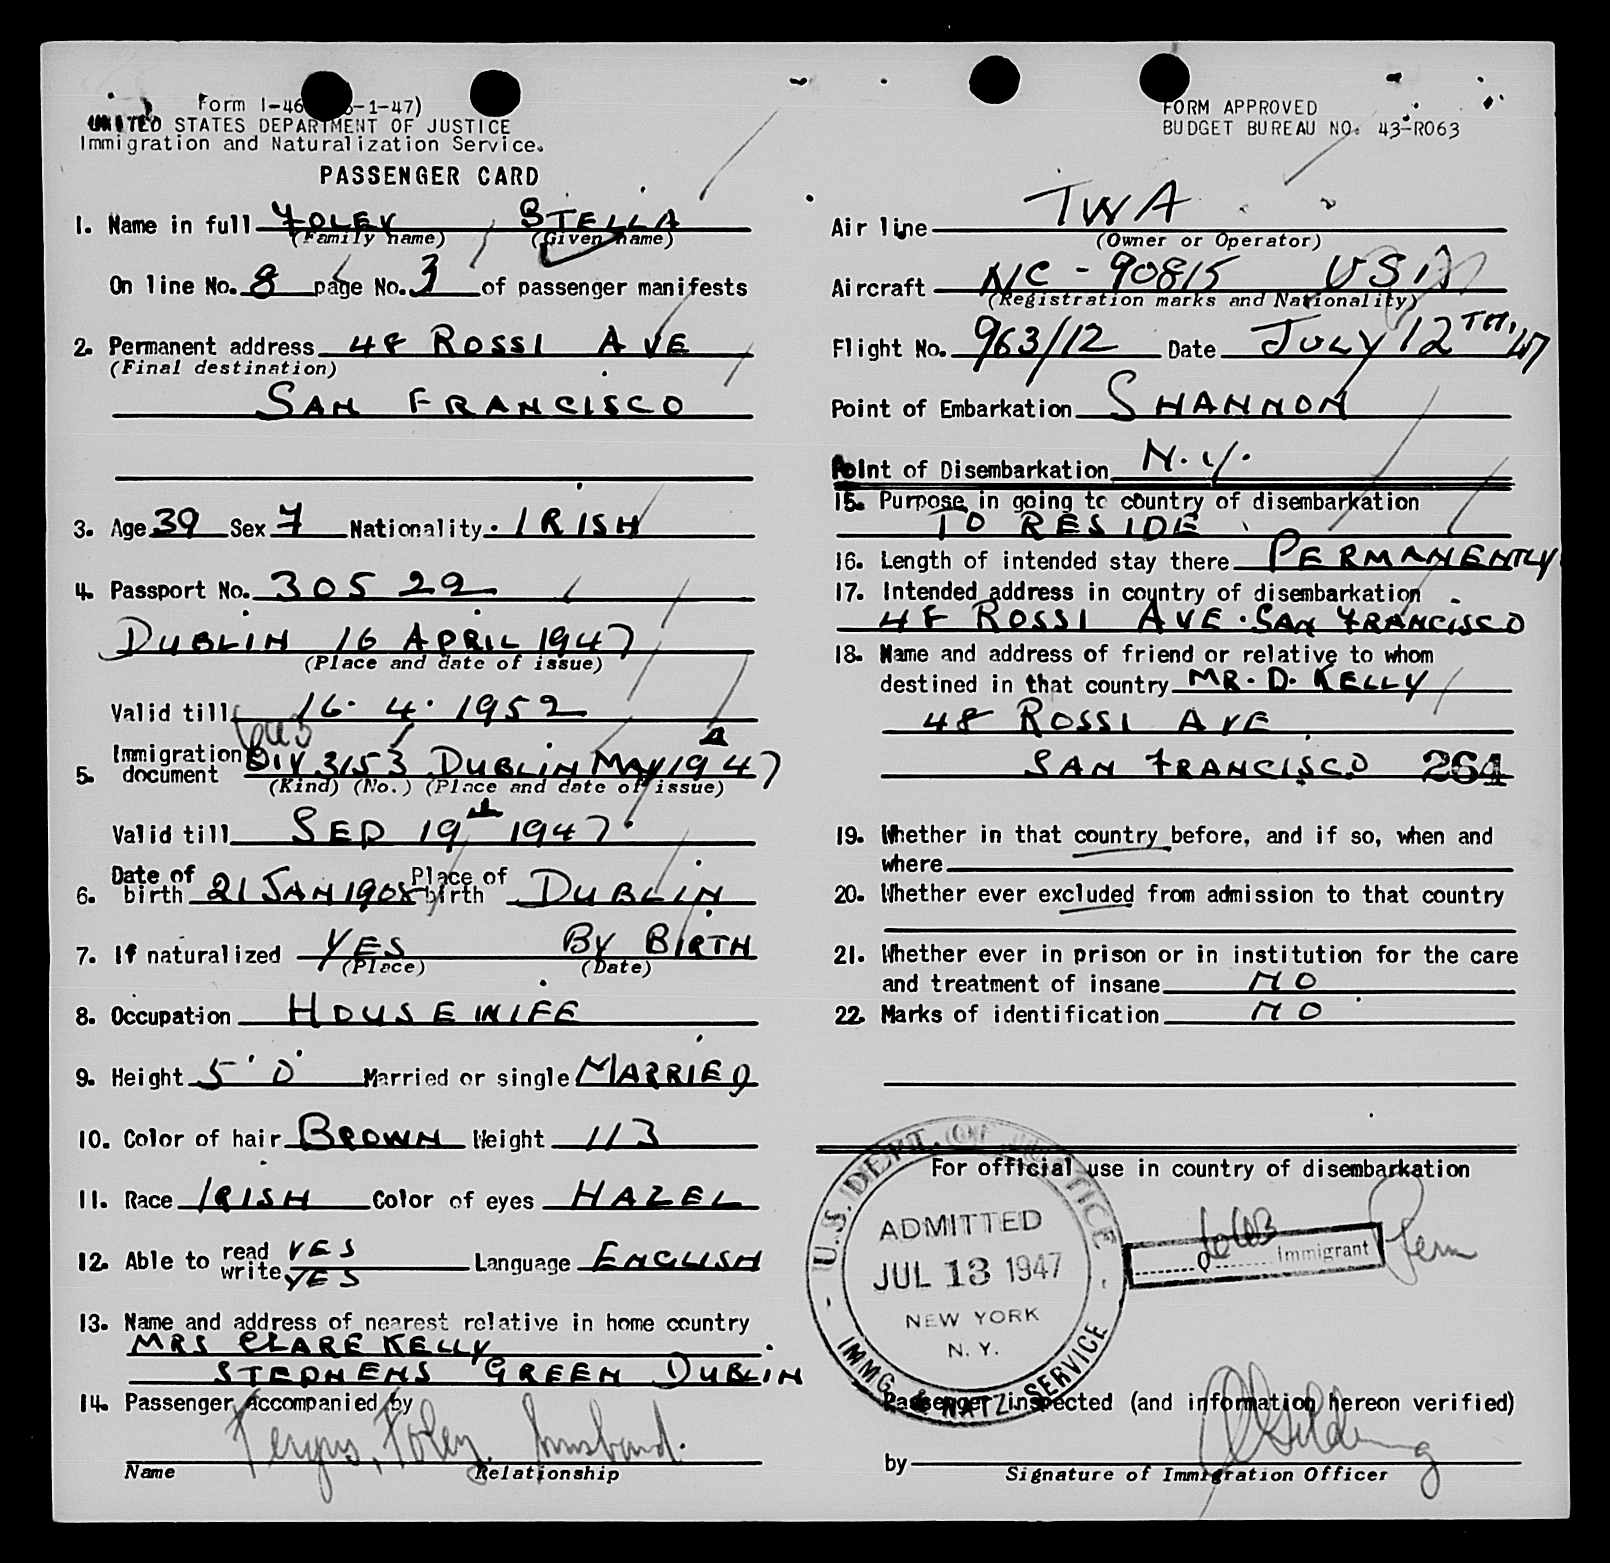 Form I-46 -1-47)
UNITED STATES DEPARTMENT OF JUSTICE
Immigration and Naturalization Service.
PASSENGER CARD
FORM APPROVED
BUDGET BUREAU NO. 43-R063
1. Name in full FOLEY STELLA
(Family name) (Given name)
On line No. 8 page No. 3 of passenger manifests
2. Permanent address 48 ROSSI AVE
(Final destination)
SAN FRANCISCO
3. Age 39 Sex F Nationality IRISH
4. Passport No. 30522
DUBLIN 16 APRIL 1947
(Place and date of issue)
Valid till 16. 4. 1952
5. Immigration document QIV 3153 DUBLIN MAY 19 47
(Kind) (No.) (Place and date of issue)
Valid till SEP 19th 1947
6. Date of birth 21 JAN 1908 Place of birth DUBLIN
7. If naturalized YES BY BIRTH
(Place) (Date)
8. Occupation HOUSEWIFE
9. Height 5' 0" Married or single MARRIED
10. Color of hair BROWN Weight 113
11. Race IRISH Color of eyes HAZEL
12. Able to read YES
write YES Language ENGLISH
13. Name and address of nearest relative in home country
MRS CLARE KELLY
STEPHENS GREEN DUBLIN
14. Passenger Accompanied by
Fergus, Foley, husband.
Name Relationship
Air line TWA
(Owner or Operator)
Aircraft NC-90815 USA
(Registration marks and Nationality)
Flight No. 963/12 Date JULY 12TH, 47
Point of Embarkation SHANNON
Point of Disembarkation N.Y.
15. Purpose in going to country of disembarkation
TO RESIDE
16. Length of intended stay there PERMANENTLY
17. Intended address in country of disembarkation
48 ROSSI AVE. SAN FRANCISCO
18. Name and address of friend or relative to whom
destined in that country MR. D. KELLY
48 ROSSI AVE
SAN FRANCISCO 264
19. Whether in that country before, and if so, when and
where
20. Whether ever excluded from admission to that country
21. Whether ever in prison or in institution for the care
and treatment of insane NO
22. Marks of identification NO
For official use in country of disembarkation
U.S. DEPT. OF JUSTICE
ADMITTED
JUL 13 1947
NEW YORK
N.Y.
IMMG. & NATZ. SERVICE
Immigrant
Passenger inspected (and information hereon verified)
by
Signature of Immigration Officer